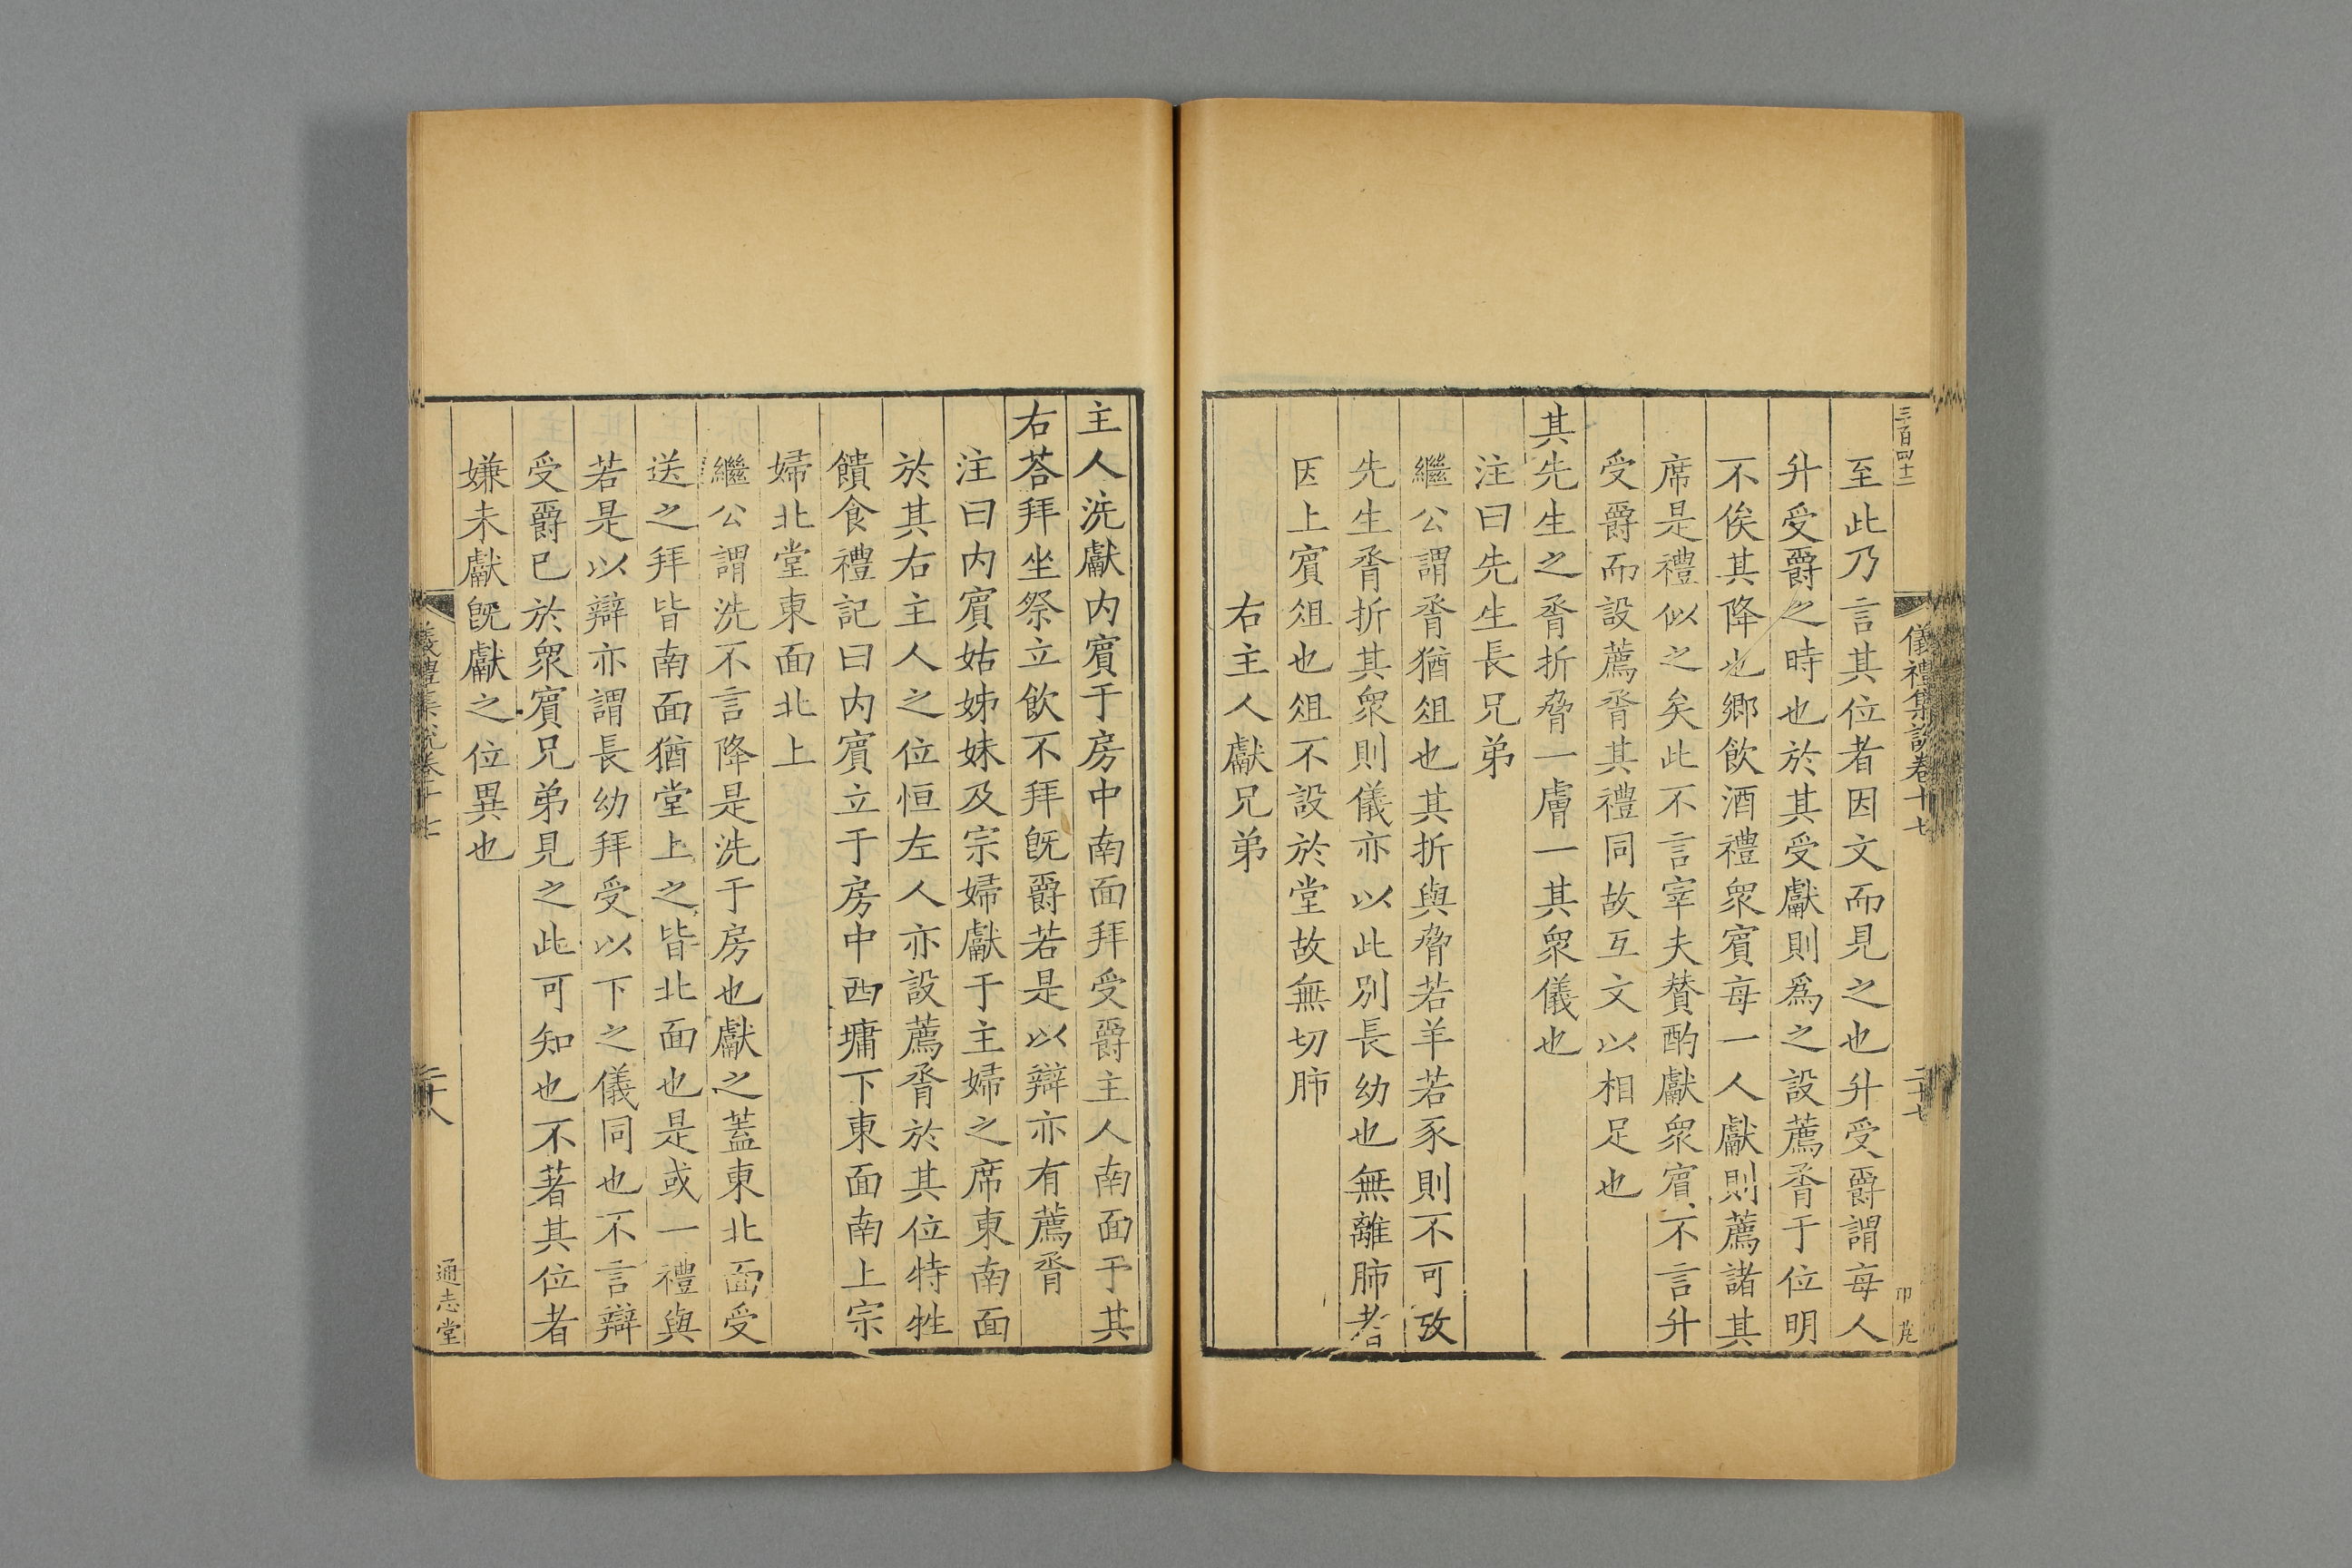 三百四十二
儀禮集說卷十七
二十七
至此乃言其位者因文而見之也升受爵謂每人
升受爵之時也於其受獻則爲之設薦脀于位明
不俟其降也鄉飲酒禮衆賓每一人獻則薦諸其
席是禮似之矣此不言宰夫贊酌獻衆賓不言升
受爵而設薦脀其禮同故互文以相足也
其先生之脀折脅一膚一其衆儀也
注曰先生長兄弟
繼公謂脀猶俎也其折與脅若羊若豕則不可攷
先生脀折其衆則儀亦以此別長幼也無離肺者
因上賓俎也俎不設於堂故無切肺
右主人獻兄弟
主人洗獻内賓于房中南面拜受爵主人南面于其
右荅拜坐祭立飲不拜旣爵若是以辯亦有薦脀
注曰内賓姑姊妹及宗婦獻于主婦之席東南面
於其右主人之位恒左人亦設薦脀於其位特牲
饋食禮記曰内賓立于房中西墉下東面南上宗
婦北堂東面北上
繼公謂洗不言降是洗于房也獻之蓋東北面受
送之拜皆南面猶堂上之皆北面也是或一禮與
若是以辯亦謂長幼拜受以下之儀同也不言辯
受爵已於衆賓兄弟見之此可知也不著其位者
嫌未獻旣獻之位異也
儀禮集說卷十七
二十八
通志堂